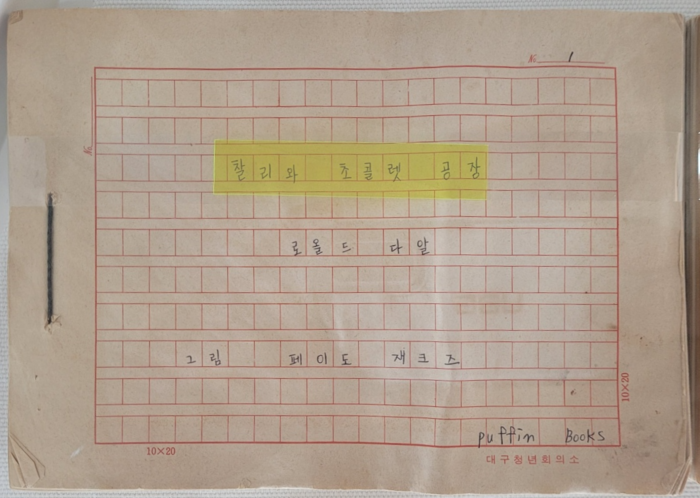 № 1
찰리와 초콜렛 공장
로올드 다알
그림 페이도 재크즈
puffin Books
10×20
10×20
대구청년회의소